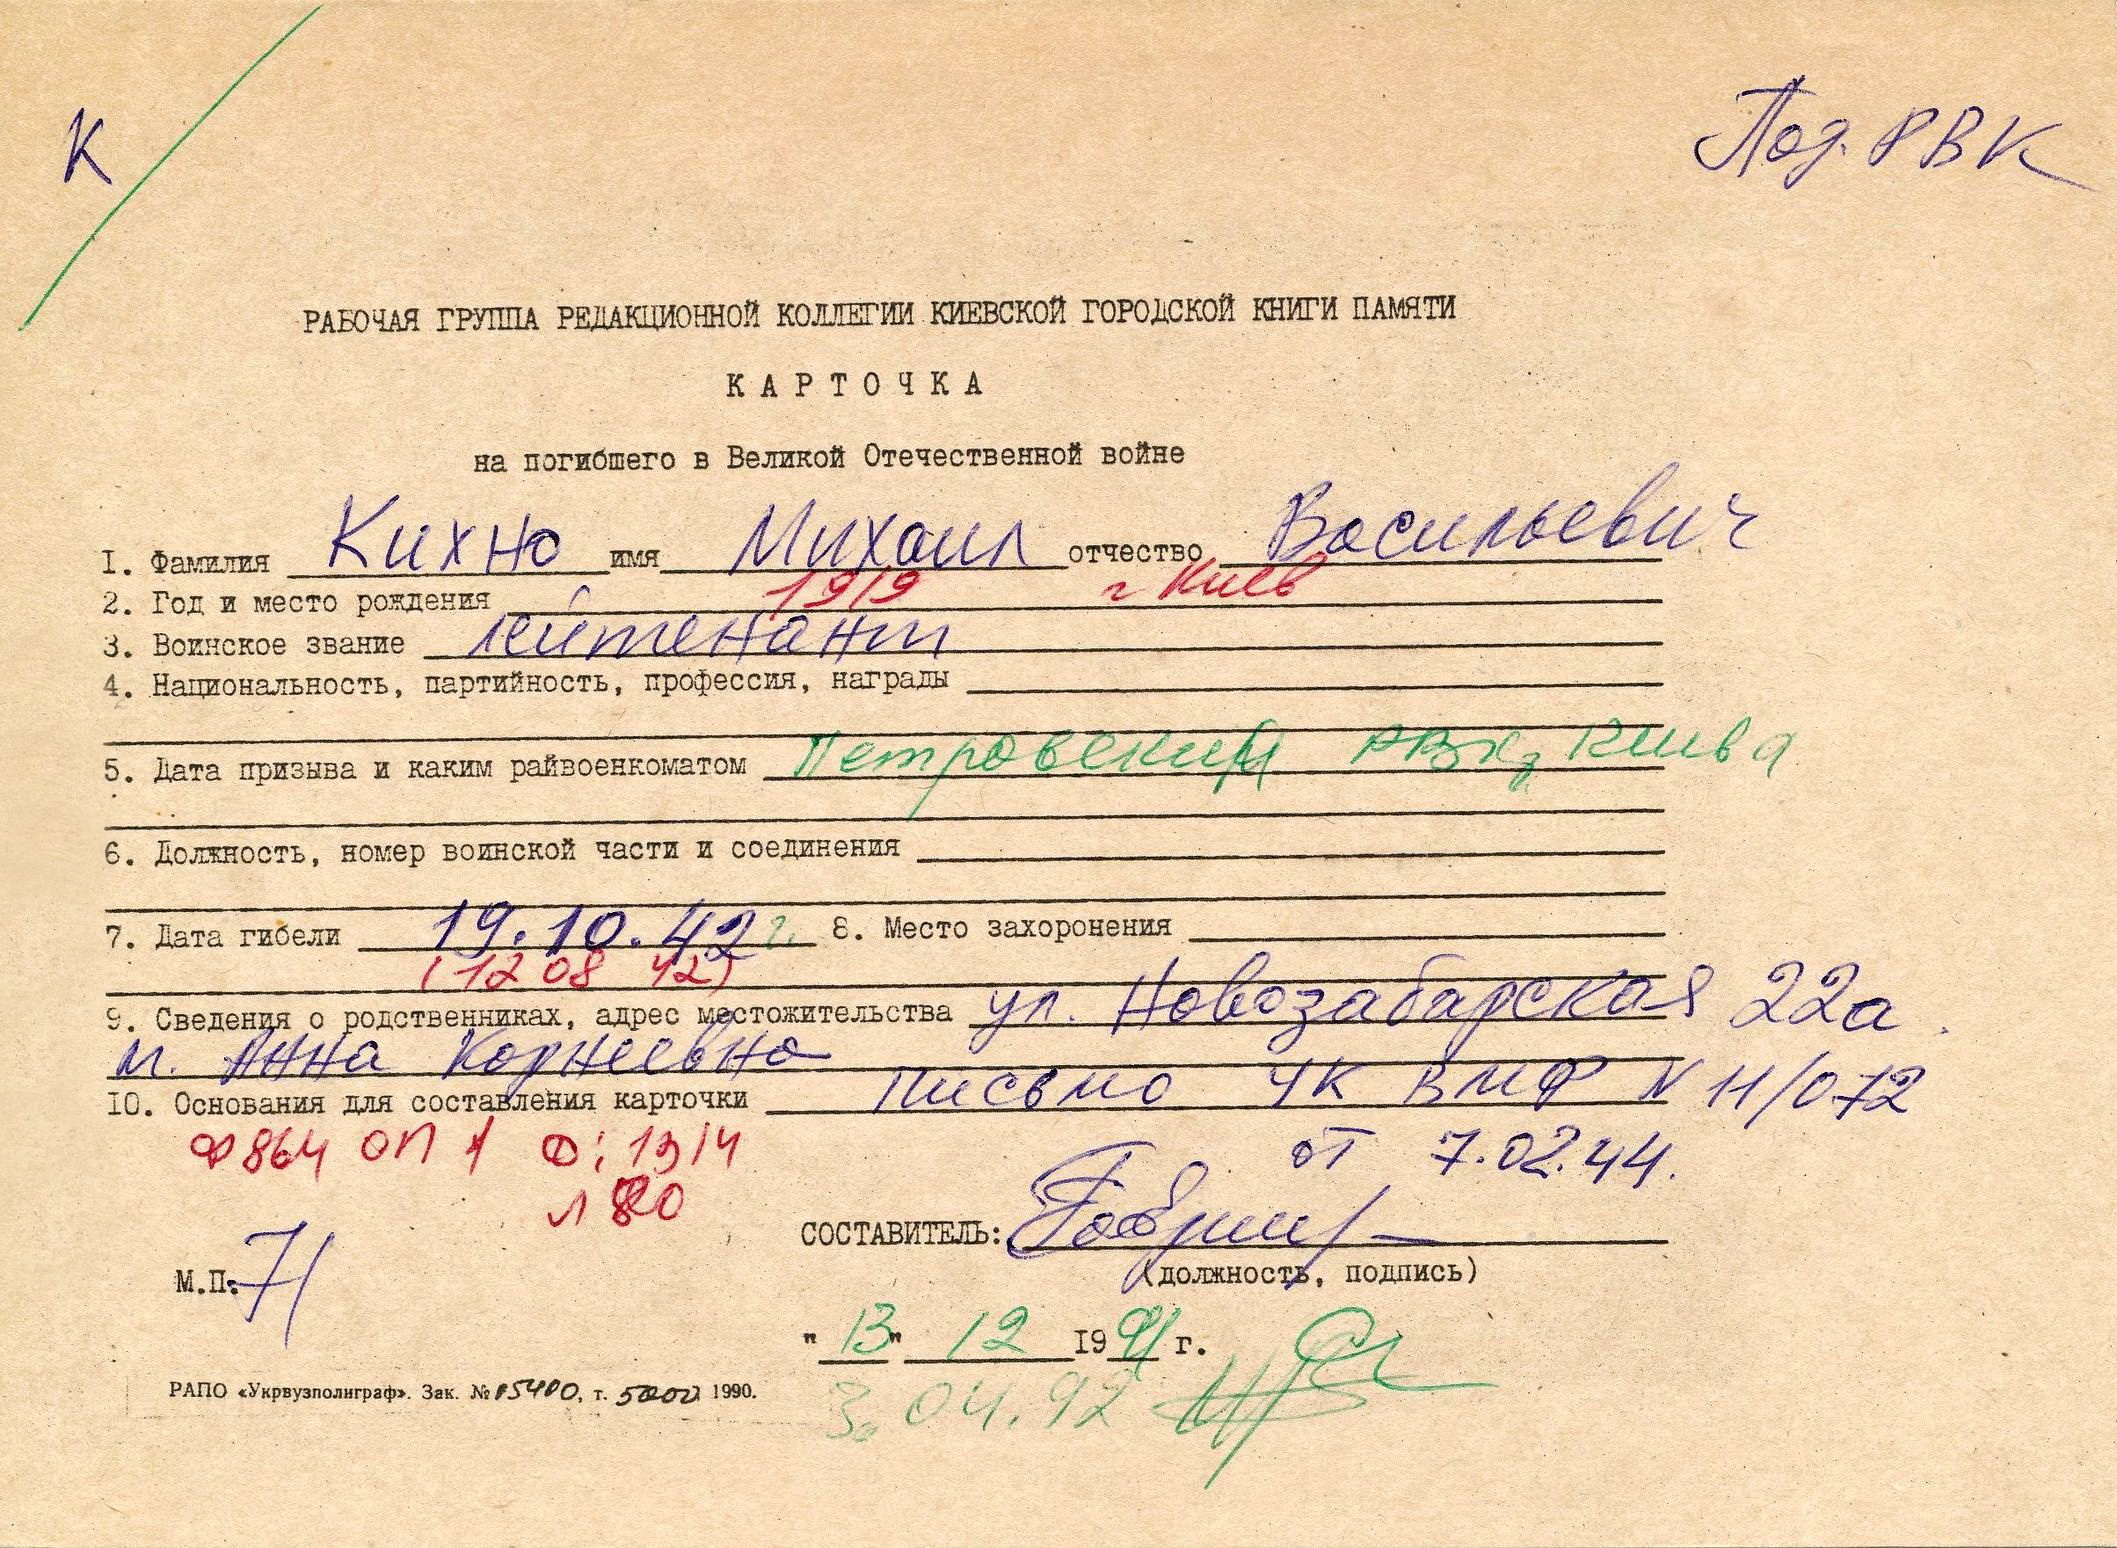 К
Под. РВК
РАБОЧАЯ ГРУППА РЕДАКЦИОННОЙ КОЛЛЕГИИ КИЕВСКОЙ ГОРОДСКОЙ КНИГИ ПАМЯТИ
КАРТОЧКА
на погибшего в Великой Отечественной войне
I. Фамилия Кихно имя Михаил отчество Васильевич
2. Год и место рождения 1919 г Киев
3. Воинское звание лейтенант
4. Национальность, партийность, профессия, награды
5. Дата призыва и каким райвоенкоматом Петровским РВК, Киева
6. Должность, номер воинской части и соединения
7. Дата гибели 19.10.42 г. 8. Место захоронения
(12 08 42)
9. Сведения о родственниках, адрес местожительства ул. Новозабарская 22а.
м. Анна Корнеевна
10. Основания для составления карточки письмо УК ВМФ N 11/072
от 7.02.44.
Ф 864 ОП 1 Ф: 1314
л 80
СОСТАВИТЕЛЬ:
(должность, подпись)
М.П. 71
"13" 12 1991 г.
3.04.92
РАПО «Укрвузполиграф». Зак. № 05400, т. 5000 1990.